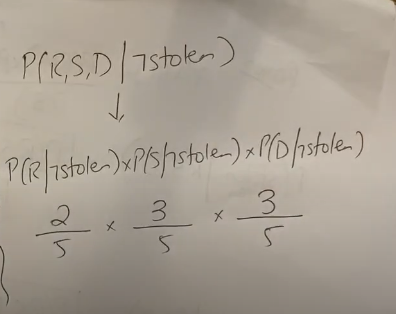 P(R,S,D|¬stolen)
↓
P(R|¬stolen)×P(S|¬stolen)×P(D|¬stolen)
2/5 × 3/5 × 3/5